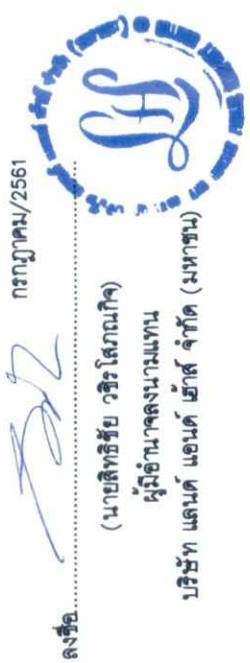 กรกฎาคม/2561
ลงชื่อ
(นายสิทธิชัย วชิรโสภณกิจ)
ผู้มีอำนาจลงนามแทน
บริษัท แลนด์ แอนด์ เฮ้าส์ จำกัด (มหาชน)
LH